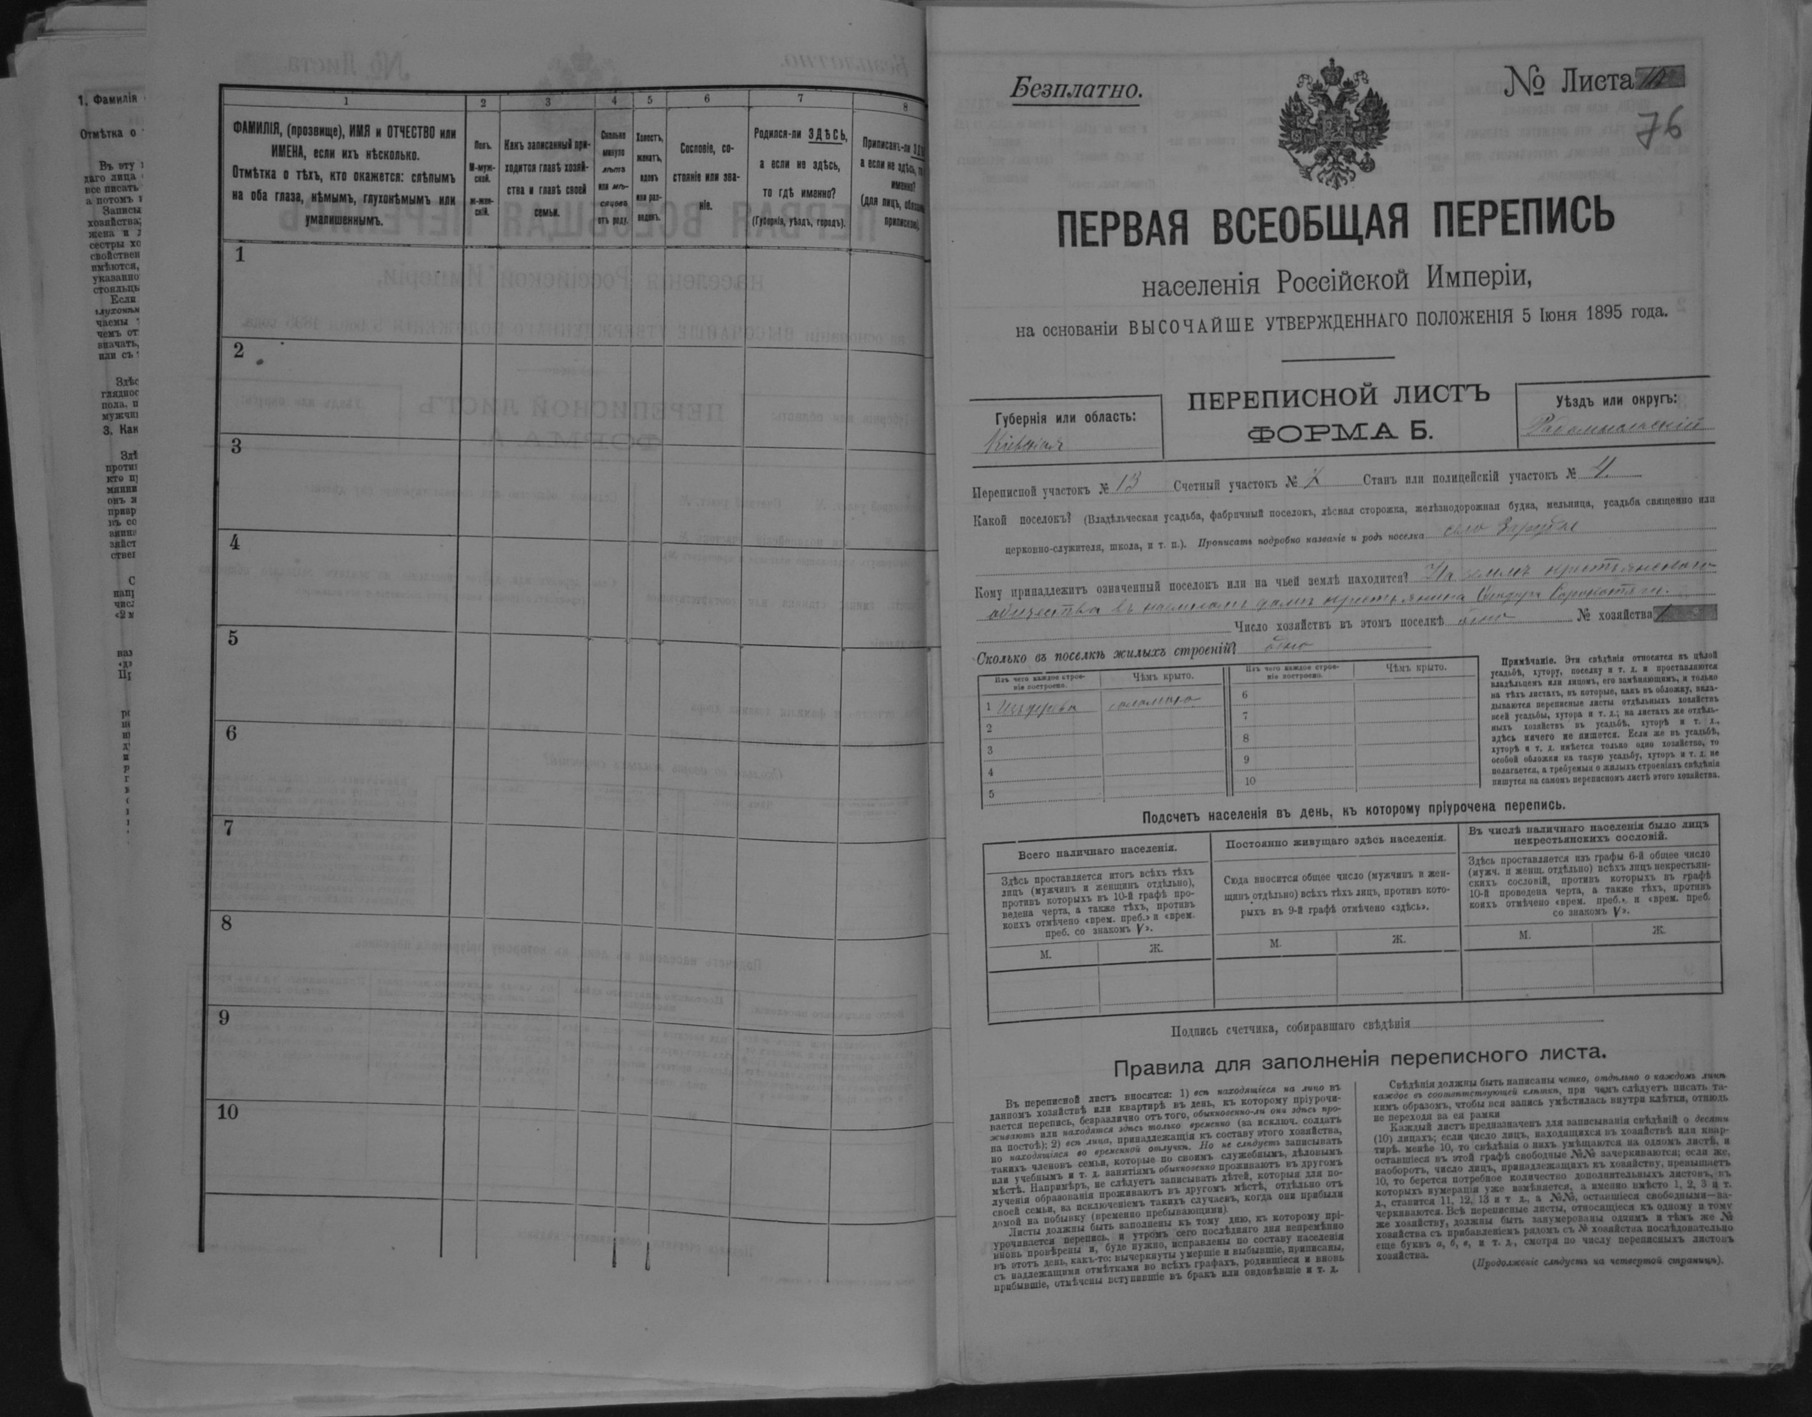 1. Фамилія
Отмѣтка о
3. Как
1 2 3 4 5 6 7 8
ФАМИЛІЯ, (прозвище), ИМЯ и ОТЧЕСТВО или
ИМЕНА, если ихъ нѣсколько.
Отмѣтка о тѣхъ, кто окажется: слѣпымъ
на оба глаза, нѣмымъ, глухонѣмымъ или
умалишеннымъ.
Полъ.
М-муж-
ской.
ж-жен-
скій.
Какъ записанный при-
ходится главѣ хозяй-
ства и главѣ своей
семьи.
Сколько
минуло
лѣтъ
или мѣ-
сяцевъ
отъ роду.
Холостъ,
женатъ,
вдовъ
или раз-
веденъ.
Сословіе, со-
стояніе или зва-
ніе.
Родился-ли ЗДѢСЬ,
а если не здѣсь,
то гдѣ именно?
(Губернія, уѣздъ, городъ).
Приписанъ-ли
а если не здѣсь,
именно?
(для лицъ,
1
2
3
4
5
6
7
8
9
10
Безплатно.
№ Листа
76
ПЕРВАЯ ВСЕОБЩАЯ ПЕРЕПИСЬ
населенія Россійской Имперіи,
на основаніи ВЫСОЧАЙШЕ УТВЕРЖДЕННАГО ПОЛОЖЕНІЯ 5 Іюня 1895 года.
ПЕРЕПИСНОЙ ЛИСТЪ
ФОРМА Б.
Губернія или область:
Кіевская
Уѣздъ или округъ:
Радомысльскій
Переписной участокъ № 13 Счетный участокъ № Станъ или полицейскій участокъ № 4.
Какой поселокъ? (Владѣльческая усадьба, фабричный поселокъ, лѣсная сторожка, желѣзнодорожная будка, мельница, усадьба священно или
церковно-служителя, школа, и т. п.). Прописать подробно названіе и родъ поселка село
Кому принадлежитъ означенный поселокъ или на чьей землѣ находится? На землѣ крестьянскаго
общества въ наемномъ домѣ крестьянина
Число хозяйствъ въ этомъ поселкѣ одно № хозяйства
Сколько въ поселкѣ жилыхъ строеній? одно
Изъ чего каждое строе-
ніе построено.
Чѣмъ крыто.
Изъ чего каждое строе-
ніе построено.
Чѣмъ крыто.
1 Изъ дерева соломою
2
3
4
5
6
7
8
9
10
Примѣчаніе. Эти свѣдѣнія относятся къ цѣлой
усадьбѣ, хутору, поселку и т. д. и проставляются
владѣльцемъ или лицомъ, его замѣняющимъ, и только
на тѣхъ листахъ, въ которые, какъ въ обложку, вкла-
дываются переписные листы отдѣльныхъ хозяйствъ
всей усадьбы, хутора и т. д.; на листахъ же отдѣль-
ныхъ хозяйствъ въ усадьбѣ, хуторѣ и т. д.,
здѣсь ничего не пишется. Если же въ усадьбѣ,
хуторѣ и т. д. имѣется только одно хозяйство, то
особой обложки на такую усадьбу, хуторъ и т. д. не
полагается, а требуемыя о жилыхъ строеніяхъ свѣдѣнія
пишутся на самомъ переписномъ листѣ этого хозяйства.
Подсчетъ населенія въ день, къ которому пріурочена перепись.
Всего наличнаго населенія.
Здѣсь проставляется итогъ всѣхъ тѣхъ
лицъ (мужчинъ и женщинъ отдѣльно),
противъ которыхъ въ 10-й графѣ про-
ведена черта, а также тѣхъ, противъ
коихъ отмѣчено «врем. преб.» и «врем.
преб. со знакомъ V».
М. Ж.
Постоянно живущаго здѣсь населенія.
Сюда вносится общее число (мужчинъ и жен-
щинъ отдѣльно) всѣхъ тѣхъ лицъ, противъ кото-
рыхъ въ 9-й графѣ отмѣчено «здѣсь».
М. Ж.
Въ числѣ наличнаго населенія было лицъ
некрестьянскихъ сословій.
Здѣсь проставляется изъ графы 6-й общее число
(мужч. и женщ. отдѣльно) всѣхъ лицъ некрестьян-
скихъ сословій, противъ которыхъ въ графѣ
10-й проведена черта, а также тѣхъ, противъ
коихъ отмѣчено «врем. преб.». и «врем. преб.
со знакомъ V».
М. Ж.
Подпись счетчика, собиравшаго свѣдѣнія
Правила для заполненія переписного листа.
Въ переписной листъ вносятся: 1) всѣ находящіеся на лицо въ
данномъ хозяйствѣ или квартирѣ въ день, къ которому пріурочи-
вается перепись, безразлично отъ того, обыкновенно-ли они здѣсь про-
живаютъ или находятся здѣсь только временно (за исключ. солдатъ
на постоѣ); 2) всѣ лица, принадлежащія къ составу этого хозяйства,
но находящіяся во временной отлучкѣ. Но не слѣдуетъ записывать
такихъ членовъ семьи, которые по своимъ служебнымъ, дѣловымъ
или учебнымъ и т. д. занятіямъ обыкновенно проживаютъ въ другомъ
мѣстѣ. Напримѣръ, не слѣдуетъ записывать дѣтей, которыя для по-
лученія образованія проживаютъ въ другомъ мѣстѣ, отдѣльно отъ
своей семьи, за исключеніемъ такихъ случаевъ, когда они прибыли
домой на побывку (временно пребывающими).
Листы должны быть заполнены къ тому дню, къ которому прі-
урочивается перепись, и утромъ сего послѣдняго дня непремѣнно
вновь провѣрены и, буде нужно, исправлены по составу населенія
въ этотъ день, какъ-то: вычеркнуты умершіе и выбывшіе, приписаны,
съ надлежащими отмѣтками во всѣхъ графахъ, родившіеся и вновь
прибывшіе, отмѣчены вступившіе въ бракъ или овдовѣвшіе и т. д.
Свѣдѣнія должны быть написаны четко, отдѣльно о каждомъ лицѣ
каждое въ соотвѣтствующей клѣткѣ, при чемъ слѣдуетъ писать та-
кимъ образомъ, чтобы вся запись умѣстилась внутри клѣтки, отнюдь
не переходя за ея рамки
Каждый листъ предназначенъ для записыванія свѣдѣній о десяти
(10) лицахъ; если число лицъ, находящихся въ хозяйствѣ или квар-
тирѣ, менѣе 10, то свѣдѣнія о нихъ умѣщаются на одномъ листѣ, и
оставшіеся въ этой графѣ свободные №№ зачеркиваются; если же,
наоборотъ, число лицъ, принадлежащихъ къ хозяйству, превышаетъ
10, то берется потребное количество дополнительныхъ листовъ, въ
которыхъ нумерація уже измѣняется, а именно вмѣсто 1, 2, 3 и т.
д., ставится 11, 12, 13 и т д., а №№, оставшіеся свободными—за-
черкиваются. Всѣ переписные листы, относящіеся къ одному и тому
же хозяйству, должны быть занумерованы однимъ и тѣмъ же №
хозяйства съ прибавленіемъ рядомъ съ № хозяйства послѣдовательно
еще буквъ а, б, в, и т. д., смотря по числу переписныхъ листовъ
хозяйства.
(Продолженіе слѣдуетъ на четвертой страницѣ).